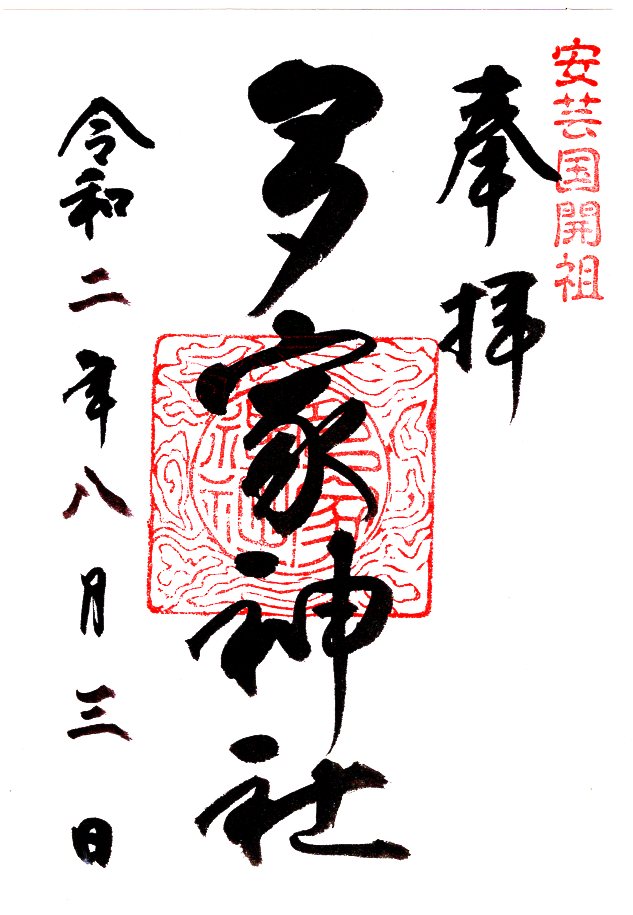 安芸国開祖
奉拝
多家神社
令和二年八月三日